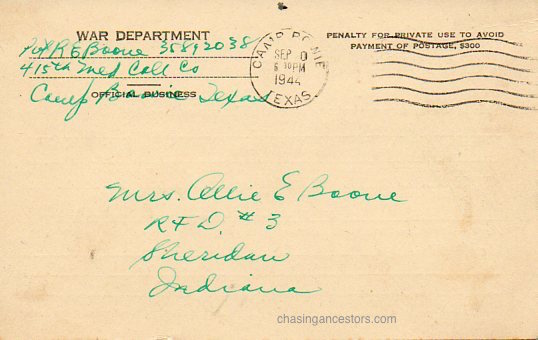 WAR DEPARTMENT
Pvt R E Boone 35892038
415th Med Coll Co
Camp Bowie Texas
OFFICIAL BUSINESS
CAMP BOWIE
SEP 0
PM
1944
TEXAS
PENALTY FOR PRIVATE USE TO AVOID
PAYMENT OF POSTAGE, $300
Mrs. Allie E Boone
RFD. # 3
Sheridan
Indiana
chasingancestors.com